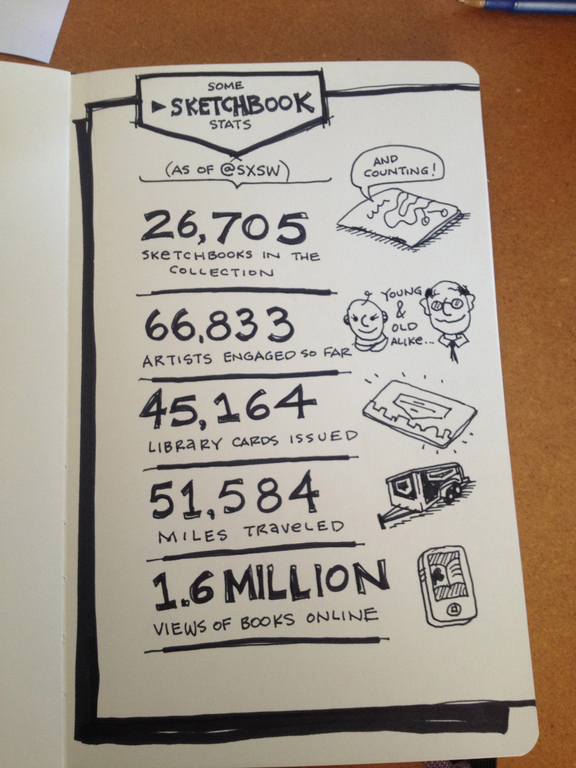 SOME
SKETCHBOOK
STATS
(AS OF @SXSW)
AND
COUNTING!
26,705
SKETCHBOOKS IN THE
COLLECTION
66,833
ARTISTS ENGAGED SO FAR
YOUNG
&
OLD
ALIKE...
45,164
LIBRARY CARDS ISSUED
51,584
MILES TRAVELED
1.6 MILLION
VIEWS OF BOOKS ONLINE